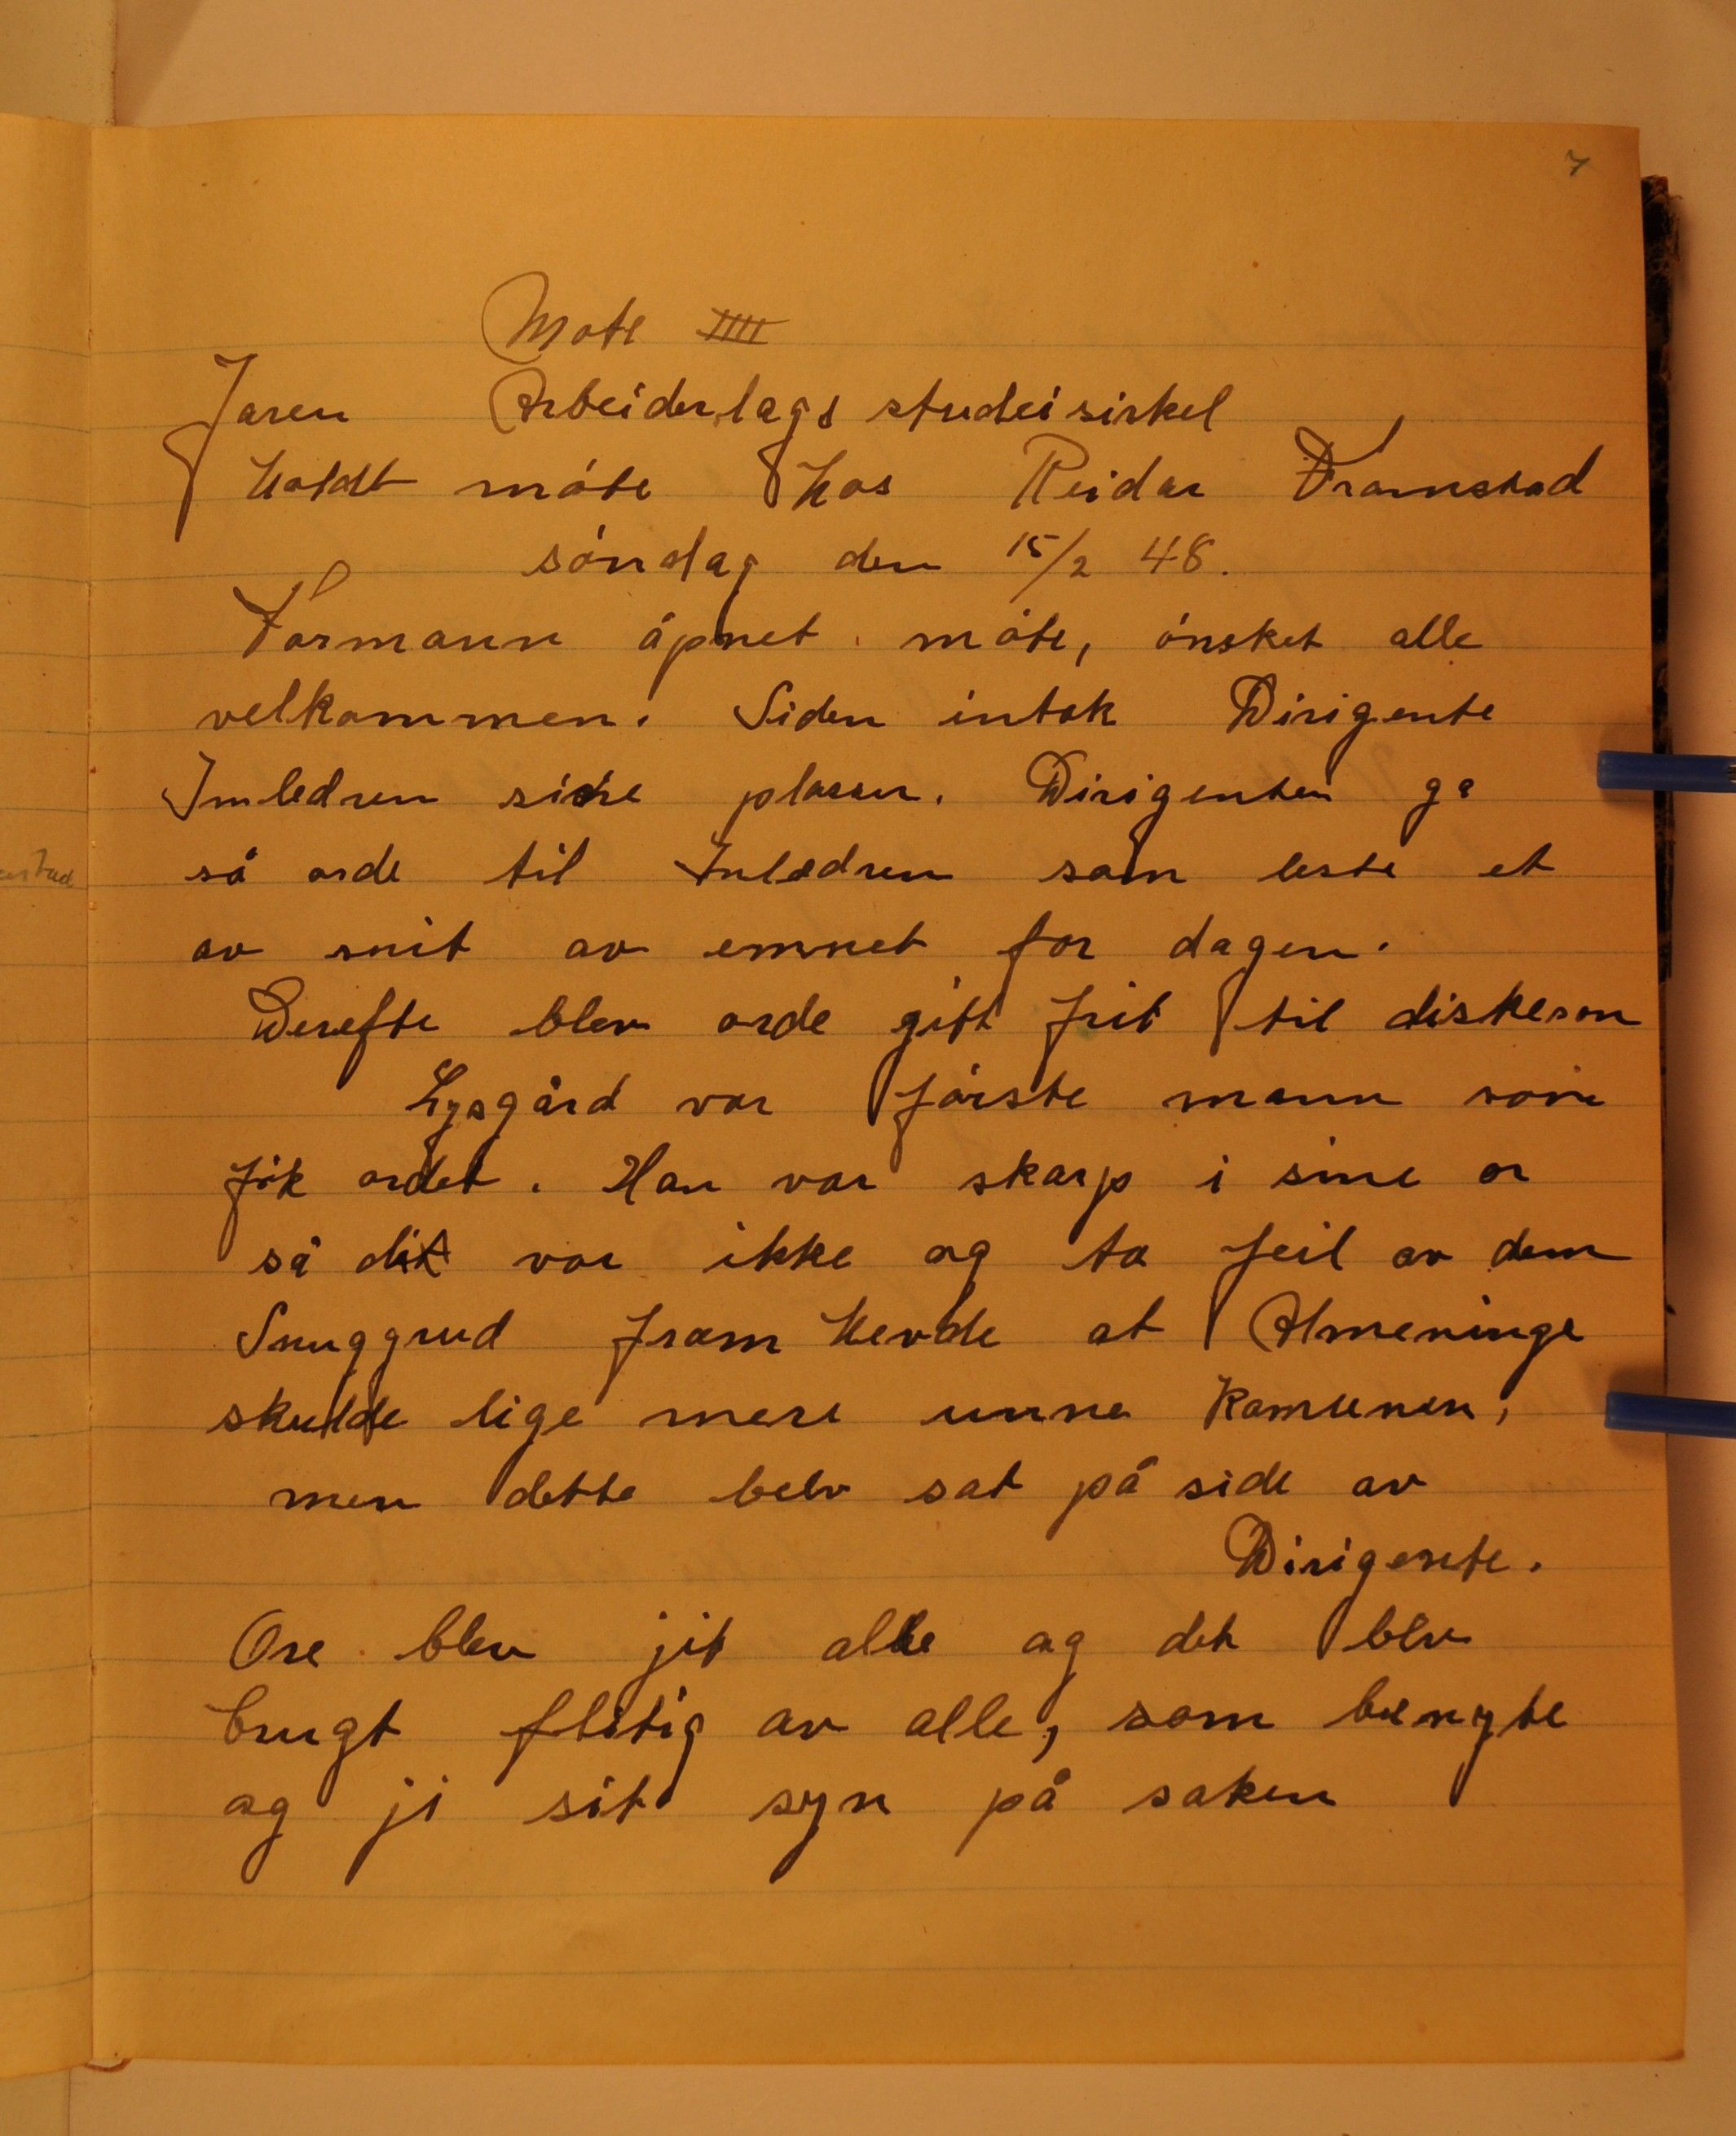 7
Mote IIII
Jaren Arbeiderlags studeisirkel
holdt móte hos Reidar Framstad
sóndag den 15/2 48.
Formann åpnet móte, ónsket alle
velkommen. Siden intok Dirigente
Inledren sine plasser. Dirigenten ga
så orde til Inledren som leste et
av snit av emnet for dagen.
Derefte blev orde gitt frit til diskeson
Lysgård var fórste mann som
fik ordet. Han var skarp i sine or
så dit var ikke og ta feil av dem
Snuggrud fram hevde at Almeninge
skulde lige mere unne Komunen,
men dette belv sat på side av
Dirigente.
Ore blev jit alle og det blv
brugt flitig av alle, som benyte
og ji sit syn på saken